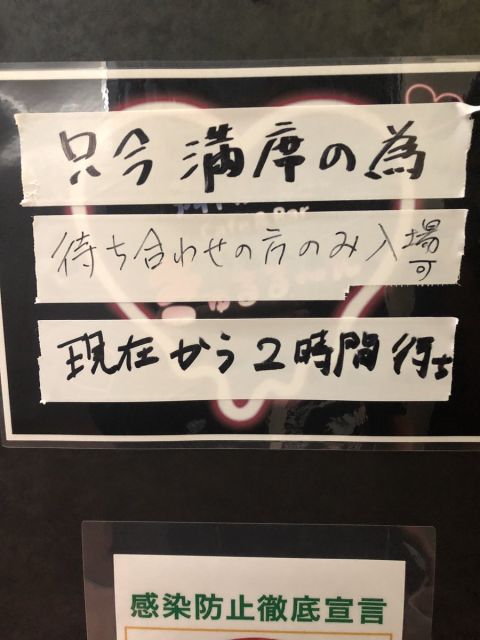 只今満席の為
待ち合わせの方のみ入場可
現在から2時間待ち
感染防止徹底宣言